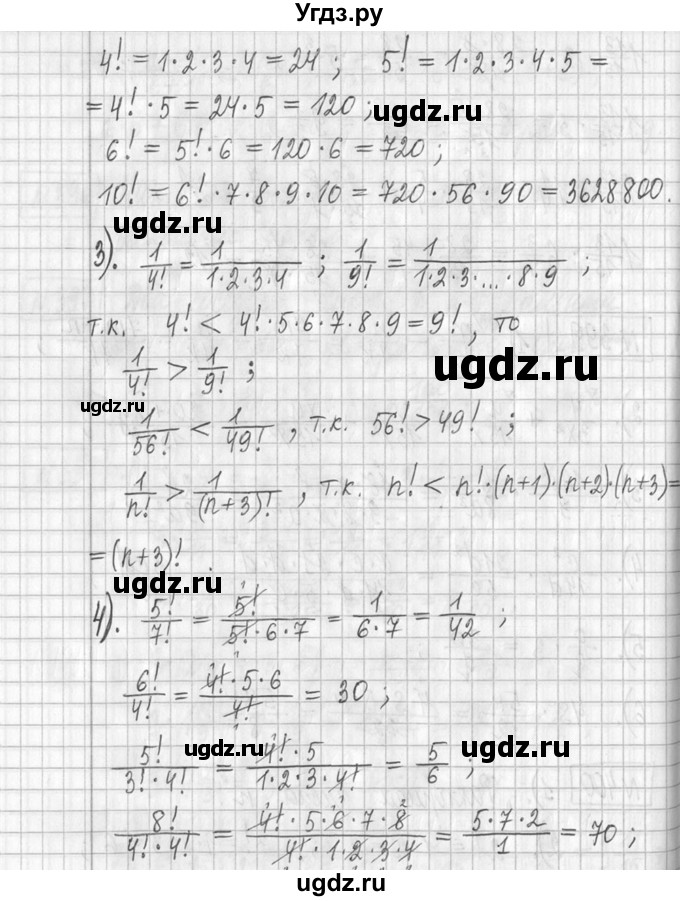 Угдз.ру
4! = 1·2·3·4 = 24 ; 5! = 1·2·3·4·5 =
= 4! · 5 = 24 · 5 = 120 ;
ugdz.ru
6! = 5! · 6 = 120 · 6 = 720 ;
10! = 6! · 7 · 8 · 9 · 10 = 720 · 56 · 90 = 3628800.
ugdz.ru
3). 1/4! = 1/(1·2·3·4) ; 1/9! = 1/(1·2·3·...·8·9) ;
т.к. 4! < 4! · 5 · 6 · 7 · 8 · 9 = 9! , то
1/4! > 1/9! ;
ugdz.ru
ugdz.ru
1/56! < 1/49! , т.к. 56! > 49! ;
1/n! > 1/(n+3)! , т.к. n! < n! · (n+1) · (n+2) · (n+3) =
= (n+3)! .
ugdz.ru
4). 5!/7! = 5!/(5! · 6 · 7) = 1/(6·7) = 1/42 ;
6!/4! = (4! · 5 · 6)/4! = 30 ;
ugdz.ru
ugdz.ru
5!/(3! · 4!) = (4! · 5)/(1·2·3·4!) = 5/6 ;
8!/(4! · 4!) = (4! · 5 · 6 · 7 · 8)/(4! · 1·2·3·4) = (5·7·2)/1 = 70 ;
ugdz.ru